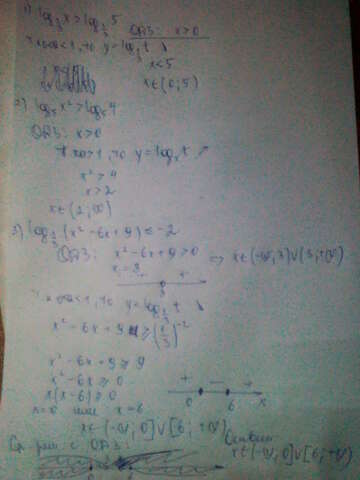 1) log_{1/3} x > log_{1/3} 5 ОДЗ: x>0
т.к осн<1, то y=log_{1/3} t ↓
x<5
x∈(0;5)
2) log_5 x² > log_5 4
ОДЗ: x>0
т.к осн>1, то y=log_5 t ↗
x²>4
x>2
x∈(2;∞)
3) log_{1/3} (x²-6x+9) ≤ -2
ОДЗ: x²-6x+9>0 => x∈(-∞;3)∪(3;+∞)
x=3
+ +
3
т.к осн<1, то y=log_{1/3} t ↓
x²-6x+9 ≥ (1/3)^{-2}
x²-6x+9 ≥ 9
x²-6x ≥ 0
x(x-6) ≥ 0
+ - +
x=0 или x=6
0 6 x
x∈(-∞;0]∪[6;+∞)
Ср. реш. с ОДЗ:
Ответ:
x∈(-∞;0]∪[6;+∞)